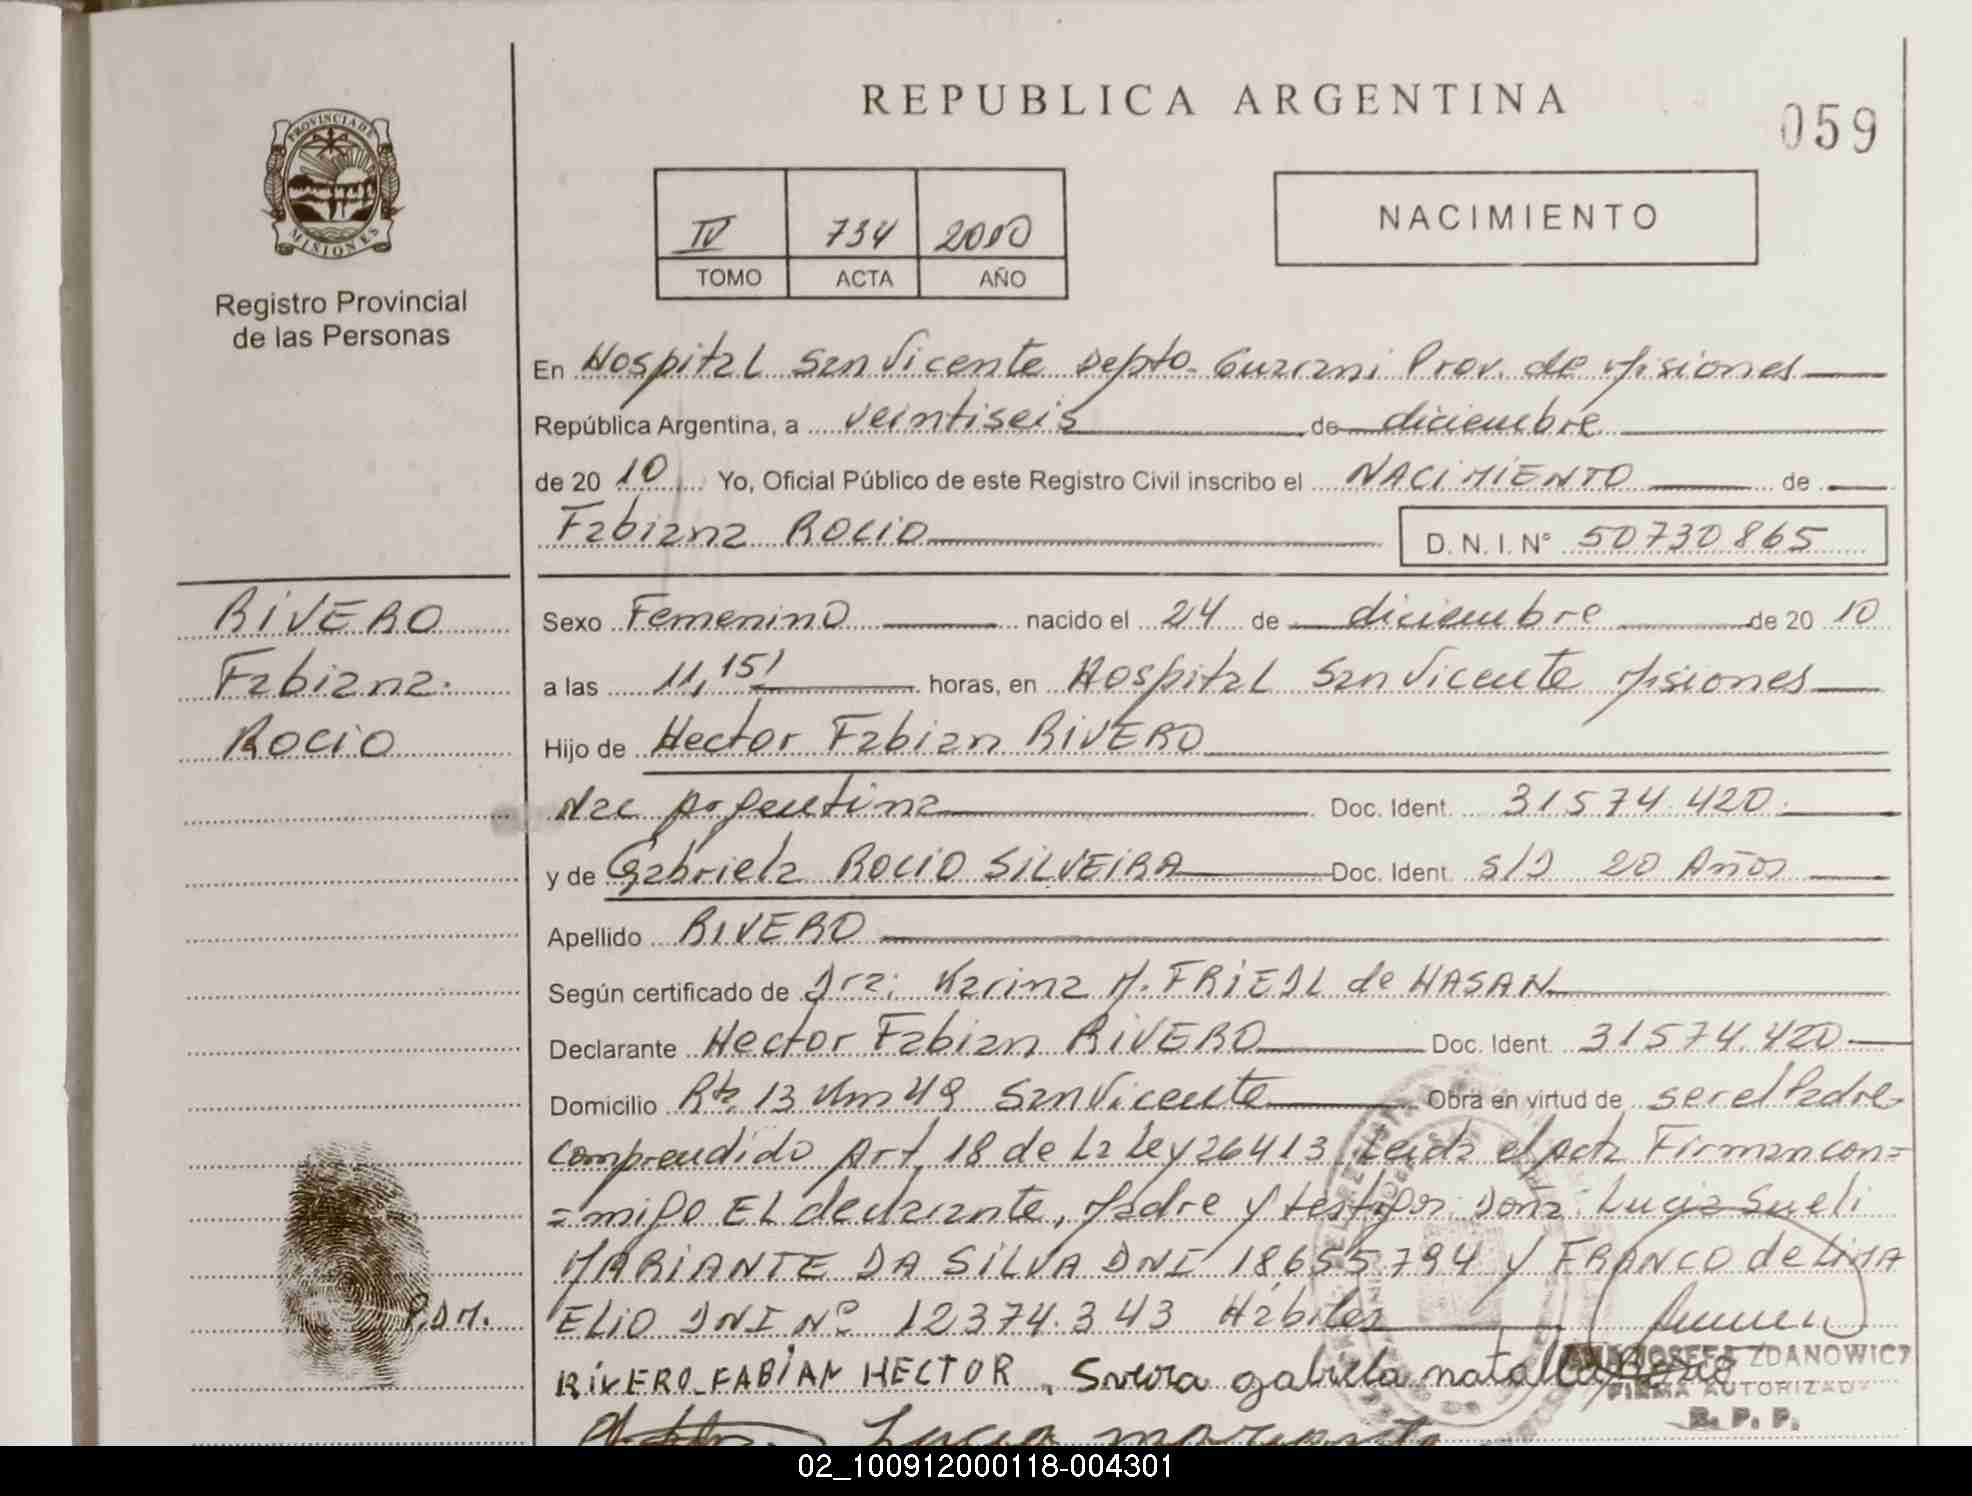 REPUBLICA ARGENTINA
059
PROVINCIA DE MISIONES
Registro Provincial
de las Personas
IV 734 2010
TOMO ACTA AÑO
NACIMIENTO
En Hospital San Vicente Depto. Guarani Prov. de Misiones
República Argentina, a veintiseis de diciembre
de 20 10 Yo, Oficial Público de este Registro Civil inscribo el NACIMIENTO de
Fabiana ROCIO D.N.I. N° 50730865
RIVERO
Fabiana
Rocio
Sexo Femenino nacido el 24 de diciembre de 20 10
a las 11,15' horas, en Hospital San Vicente Misiones
Hijo de Hector Fabian RIVERO
Nac Argentina Doc. Ident. 31574.420.
y de Gabriela ROCIO SILVEIRA Doc. Ident. S/D 20 Años
Apellido RIVERO
Según certificado de Dra: Karina M. FRIEDL de HASAN
Declarante Hector Fabian RIVERO Doc. Ident. 31574.420
Domicilio Rta 13 Km 48 San Vicente Obra en virtud de ser el Padre
comprendido Art. 18 de La Ley 26413 Leida el acta Firman con=
=migo EL declarante, Madre y testigos: Doña: Lucia Sueli
MARIANTE DA SILVA DNI 18,655.794 y FRANCO de LIMA
ELIO DNI N° 12374.343 Hábiles
P.D.M.
RIVERO FABIAN HECTOR, gabriela natalia
JOSEFA ZDANOWICZ
FIRMA AUTORIZADA
R. P. P.
Lucia mariante
02_100912000118-004301